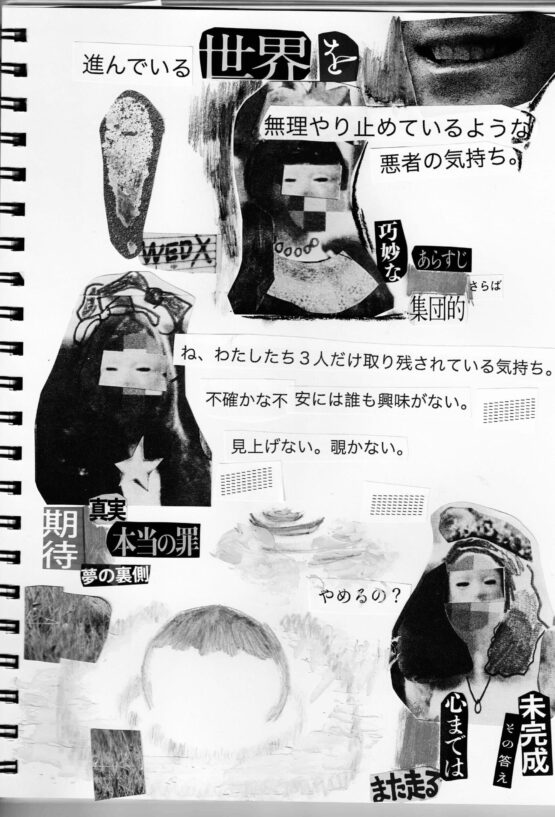 進んでいる世界を
無理やり止めているような
悪者の気持ち。
WEDX
巧妙な
あらすじ
さらば
集団的
ね、わたしたち3人だけ取り残されている気持ち。
不確かな不安には誰も興味がない。
見上げない。覗かない。
期待
真実
本当の罪
夢の裏側
やめるの?
心までは
未完成
その答え
また走る